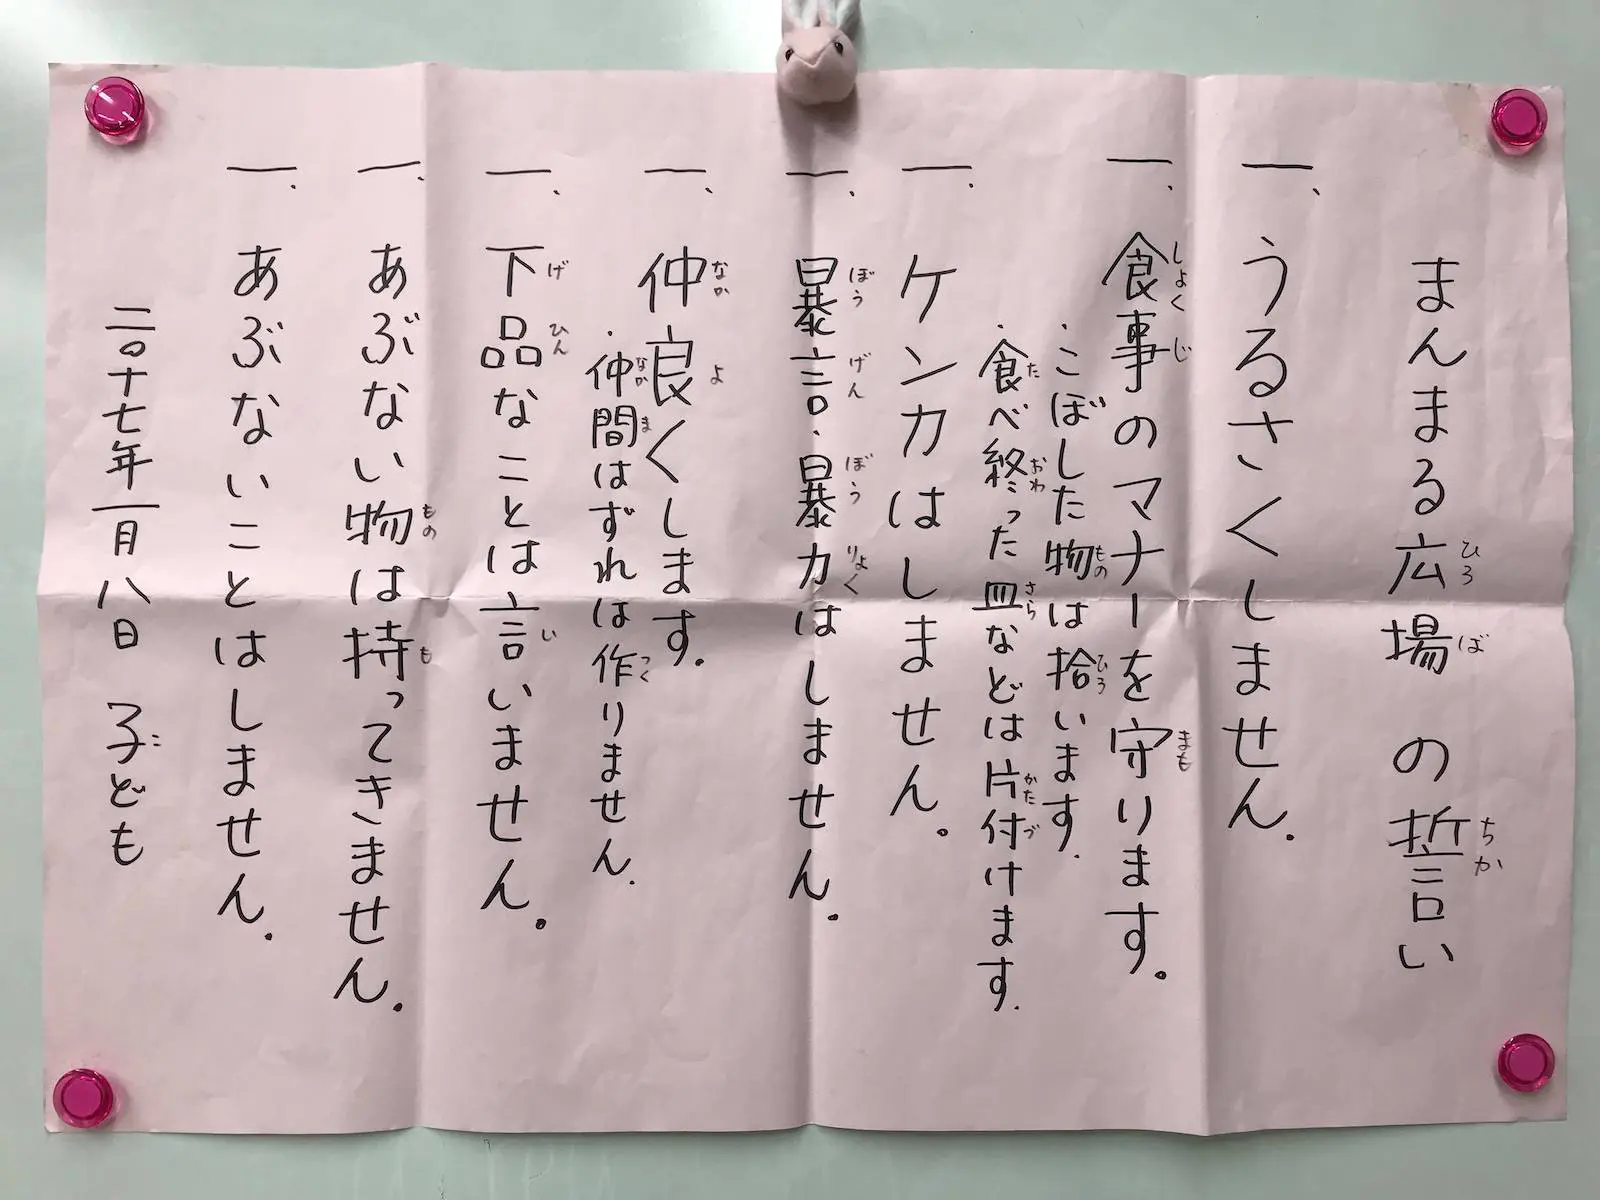 まんまる広場の誓い
一、うるさくしません。
一、食事のマナーを守ります。
・こぼした物は拾います.
・食べ終った皿などは片付けます.
一、ケンカはしません。
一、暴言・暴力はしません.
一、仲良くします.
・仲間はずれは作りません.
一、下品なことは言いません。
一、あぶない物は持ってきません.
一、あぶないことはしません.
二〇十七年一月八日 子ども